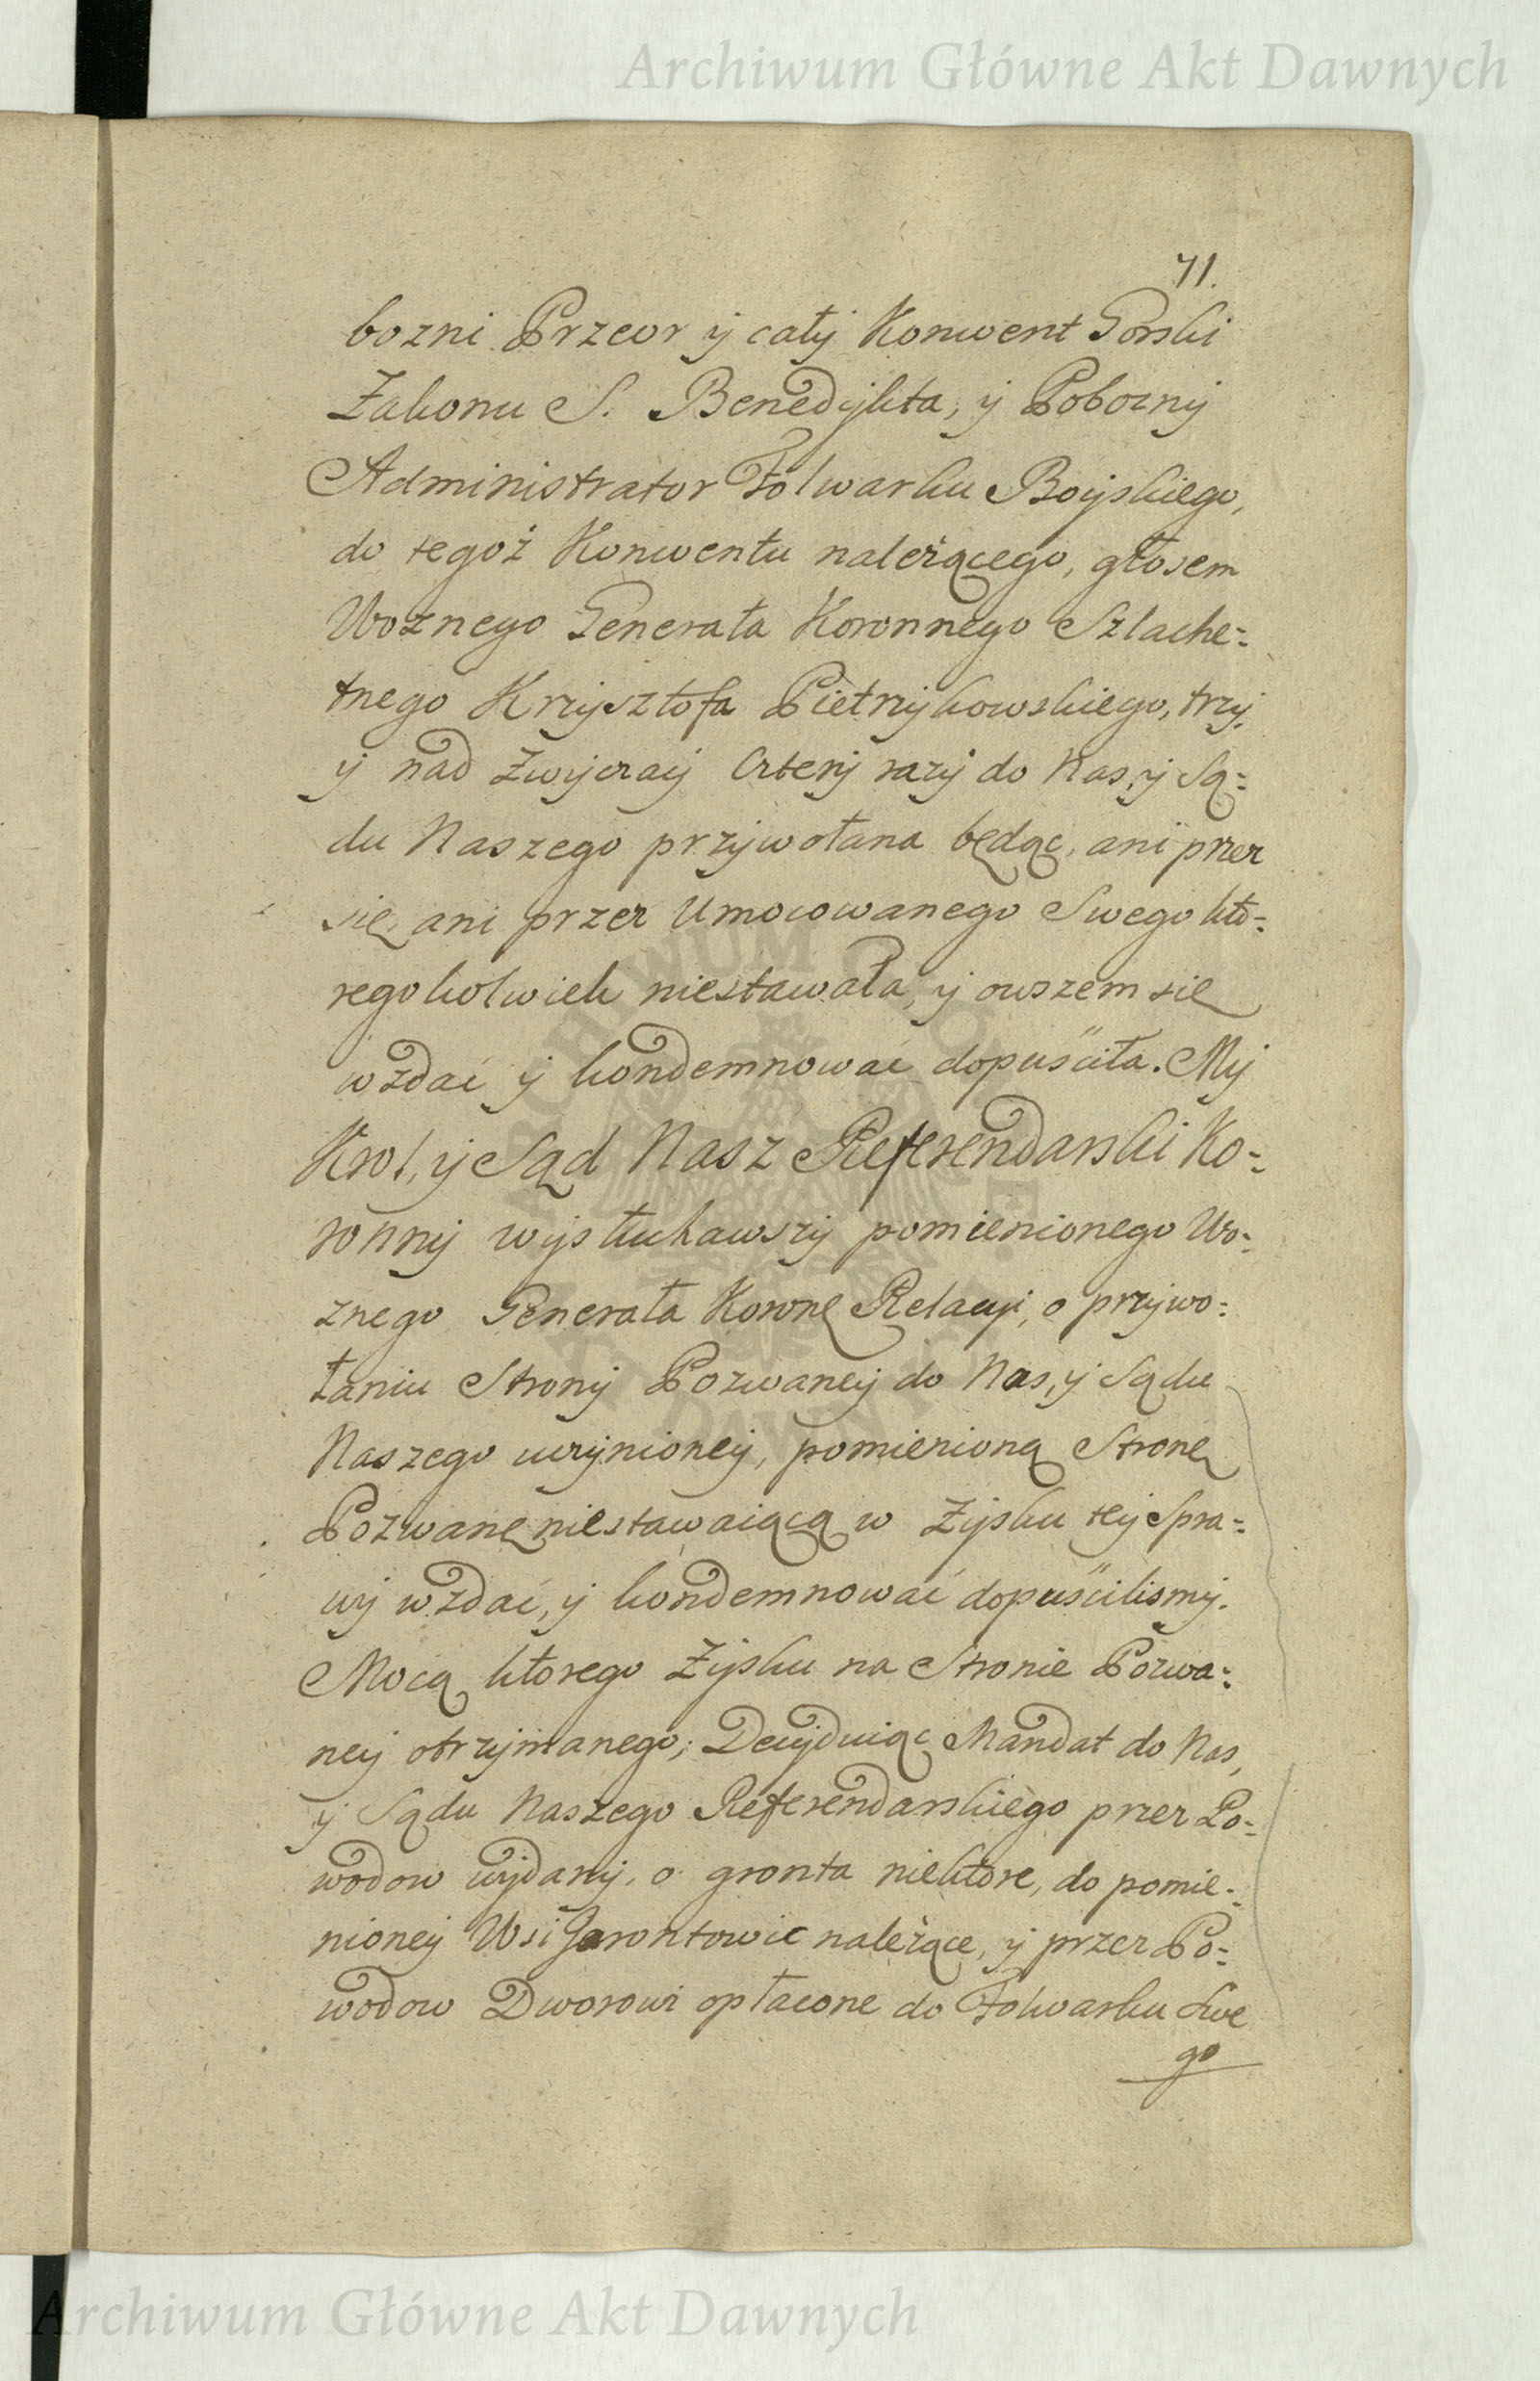 Archiwum Główne Akt Dawnych
71.
bozni Przeor y cały Konwent Gorski
Zakonu S. Benedykta, y Pobozny
Administrator Folwarku Boyskiego,
do tegoż Konwentu należącego, głosem
Woznego Generała Koronnego Szlache=
tnego Krzysztofa Pietrzykowskiego, trzy,
y nad Zwyczay Cztery razy do Nas, y Są=
du Naszego przywołana będąc, ani przez
się, ani przez Umocowanego Swego kto=
regokolwiek niestawała, y owszem się
wzdać y kondemnować dopuściła. My
Krol, y Sąd Nasz Referendarski Ko=
ronny wysłuchawszy pomienionego Wo=
znego Generała Koronę Relacyi, o przywo=
łaniu Strony Pozwaney do Nas, y Sądu
Naszego uczynioney, pomienioną Stronę
Pozwanę niestawaiącą w Zysku tey Spra=
wy wzdać, y kondemnować dopuścilismy.
Mocą ktorego Zysku na Stronie Pozwa=
ney otrzymanego; Decyduiąc Mandat do Nas,
y Sądu Naszego Referendarskiego przez Po=
wodow wydany, o gronta niektore, do pomie=
nioney Wsi Jarontowic należące, y przez Po=
wodow Dworowi opłacone do Folwarku Swe
go
Archiwum Główne Akt Dawnych